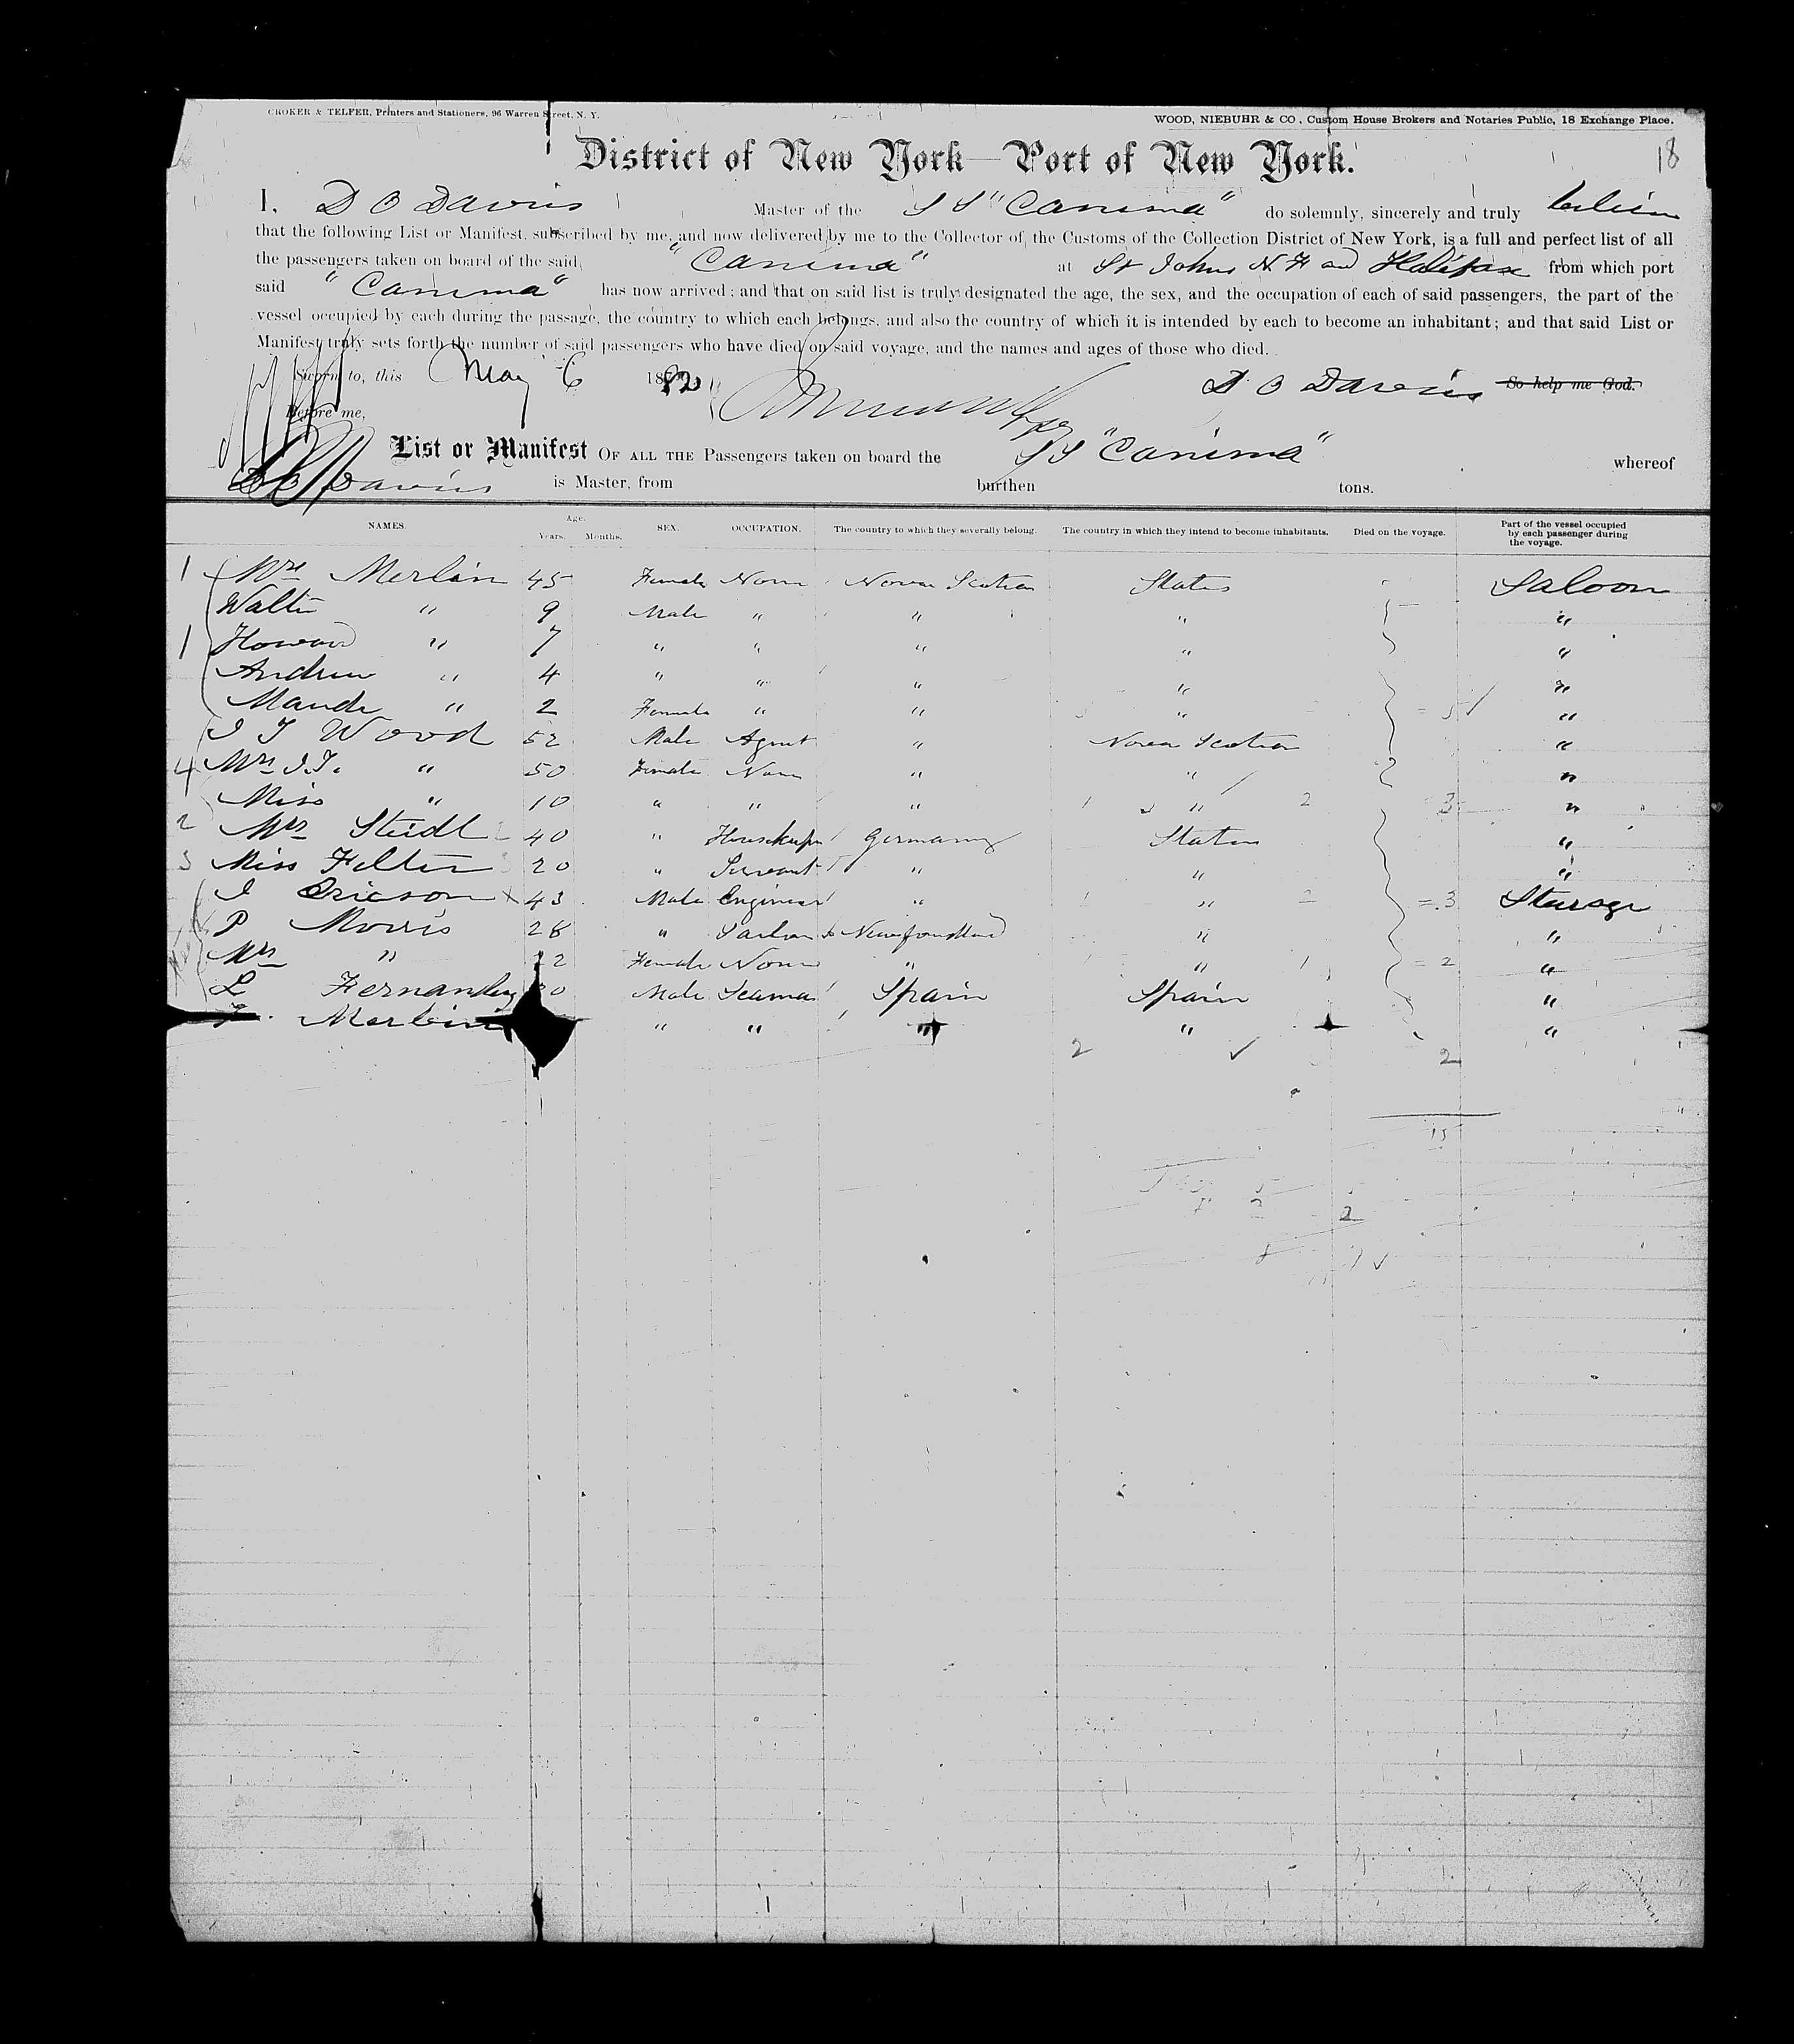 CROKER & TELFER, Printers and Stationers, 96 Warren Street, N. Y.
WOOD, NIEBUHR & CO., Custom House Brokers and Notaries Public, 18 Exchange Place.
District of New York—Port of New York.
18
I, D O Davis Master of the SS "Canima" do solemnly, sincerely and truly
that the following List or Manifest, subscribed by me, and now delivered by me to the Collector of the Customs of the Collection District of New York, is a full and perfect list of all
the passengers taken on board of the said "Canima" at St Johns N. F and Halifax from which port
said "Canima" has now arrived; and that on said list is truly designated the age, the sex, and the occupation of each of said passengers, the part of the
vessel occupied by each during the passage, the country to which each belongs, and also the country of which it is intended by each to become an inhabitant; and that said List or
Manifest truly sets forth the number of said passengers who have died on said voyage, and the names and ages of those who died.
Sworn to, this May 6 1882 D O Davis So help me God.
Before me,
List or Manifest OF ALL THE Passengers taken on board the SS "Canima" whereof
Davis is Master, from burthen tons.
NAMES. Age. Years. Months. SEX. OCCUPATION. The country to which they severally belong. The country in which they intend to become inhabitants. Died on the voyage. Part of the vessel occupied by each passenger during the voyage.
1 Mrs Merlin 45 Female None Nova Scotia States Saloon
Walter " 9 Male " " " "
1 Howard " 7 " " " " "
Andrew " 4 " " " " "
Maude " 2 Female " " " = 5 "
I T Wood 52 Male Agent " Nova Scotia "
4 Mrs I. T. " 50 Female None " " "
Miss " 10 " " " " 2 3 "
2 Mrs Steidl 40 " Housekeeper Germany States "
3 Miss Filter 20 " Servant " " "
I Ericson 43 Male Engineer " " = 3 Steerage
P Morris 28 " Newfoundland " "
Mrs " 22 Female None " " = 2 "
L Fernandez Male Seaman Spain Spain "
" " " " "
2 2
15
2